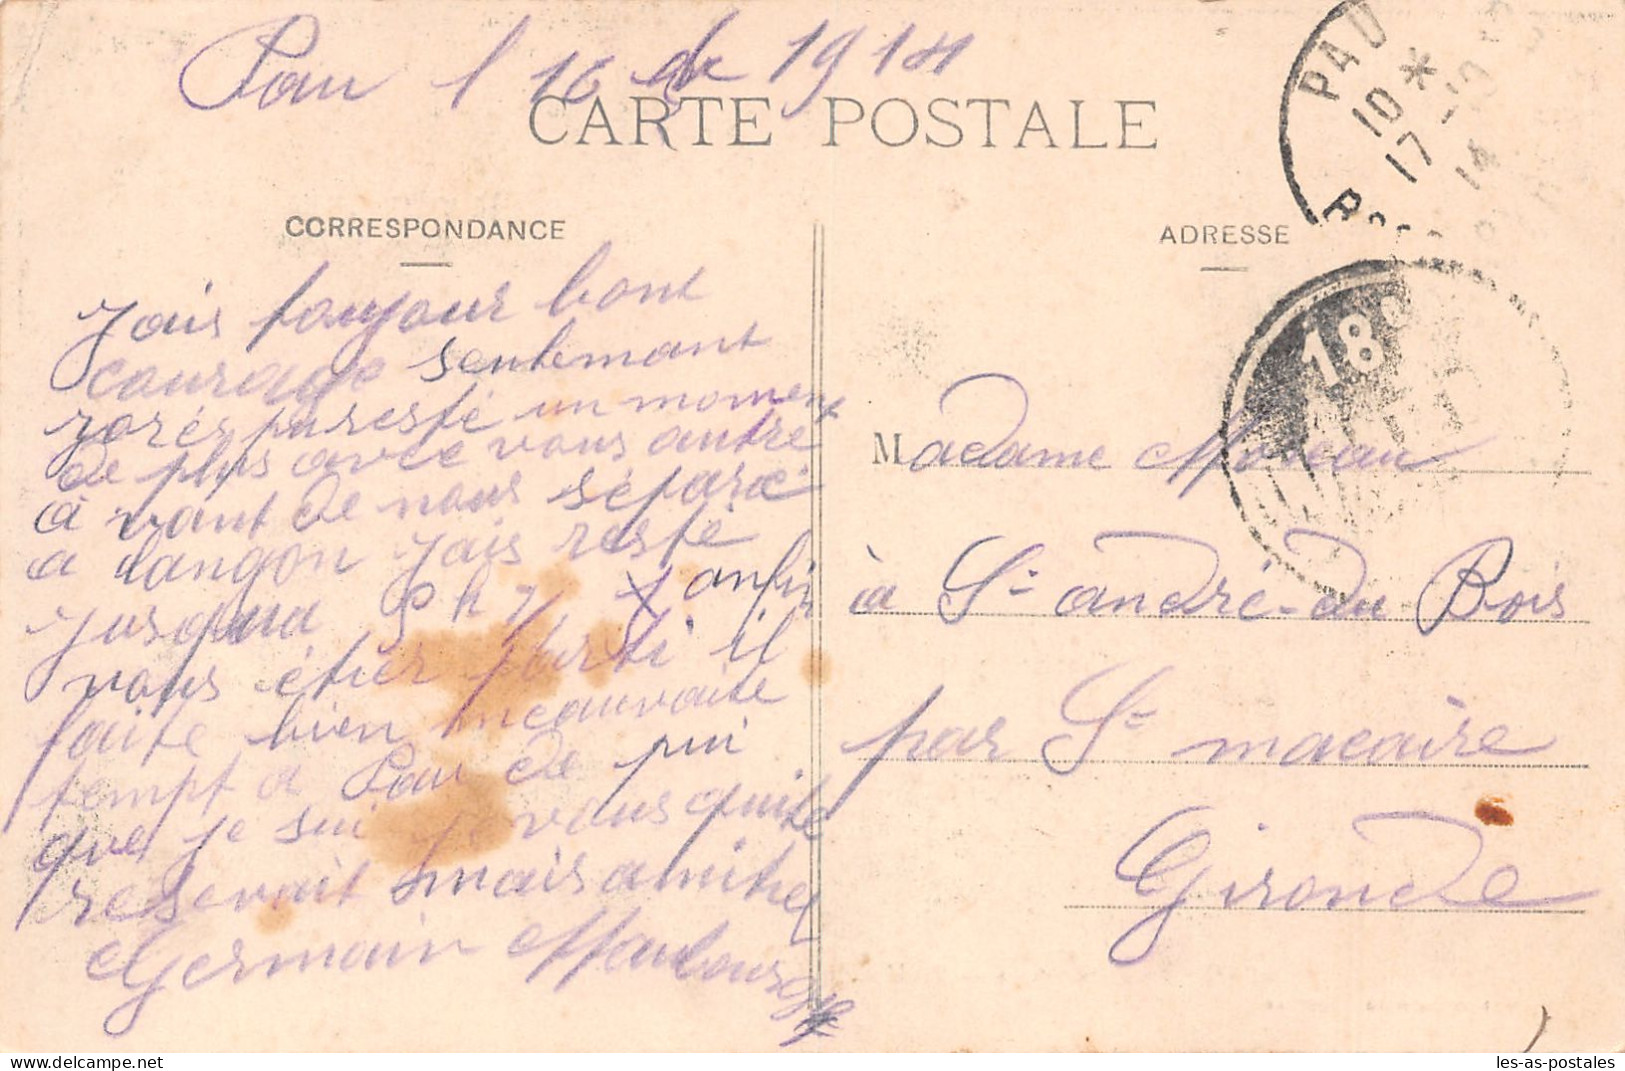 Pau l 16 de 1914
CARTE POSTALE
PAU *
10
17 14
CORRESPONDANCE
ADRESSE
18
jais toujour bont
courage seulemant
zorés pu resté un moment
de plus avec vous autre
à vant de nous séparé
a Langon jais resté
jusqua 9 h 7 anfin
vous étier parti il
faite bien mauvaite
tempt a Pau de pui
que je sui vous quité
resevait mais amitié
Germain
Madame Moreau
à St André-du Bois
par St macaire
Gironde
les-as-postales